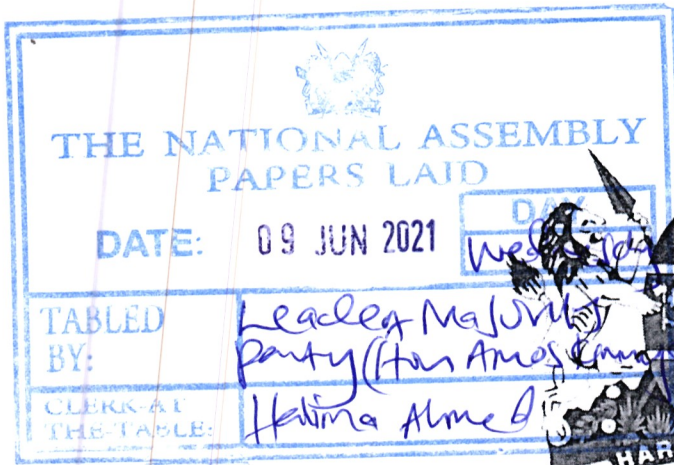 THE NATIONAL ASSEMBLY
PAPERS LAID
DATE: 09 JUN 2021
DAY
Wednesday
TABLED BY:
Leader of Majority
Party (Hon Amos
CLERK-AT THE-TABLE:
Halima Ahmed
HAR